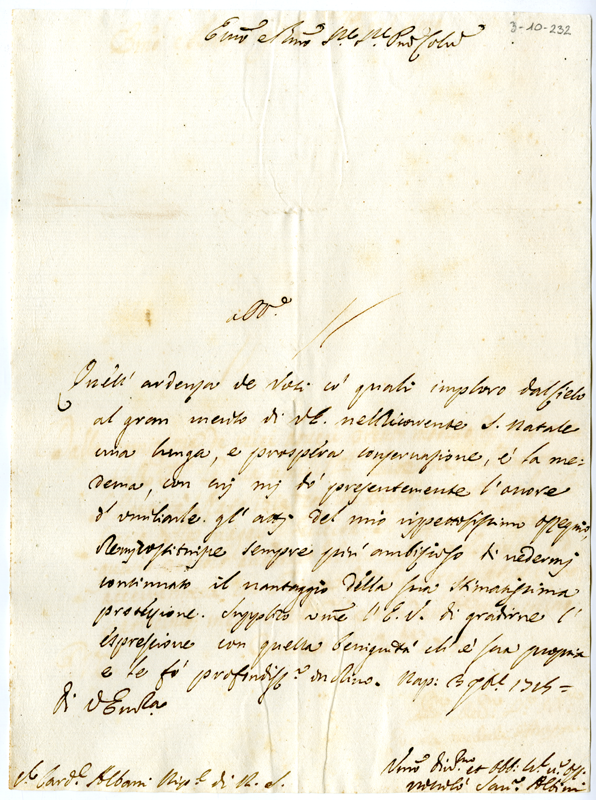 3-10-232
Em.o e Rmo Sr. Sr. Pne Colmo
Quell' ardenza de Voti co' quali imploro dal Cielo
al gran merito di V.E. nel ricorrente S. Natale
una lunga, e prospera conservazione, è la me-
dema, con cui mi dò presentemente l'onore
d'umiliarle gl'atti del mio rispettosissimo ossequio,
sempre più ambizioso di vedermi
continuato il vantaggio della sua stimatissima
protezione. Supplico l'E.V. di gradirne l'
espressione con quella benignità ch'è sua propria
e le fò profondiss.e inclino. Nap: Xbre 1715 =
di V Emza
Sr Card.l Albani di N. S.
Umo et Obb:
Albini